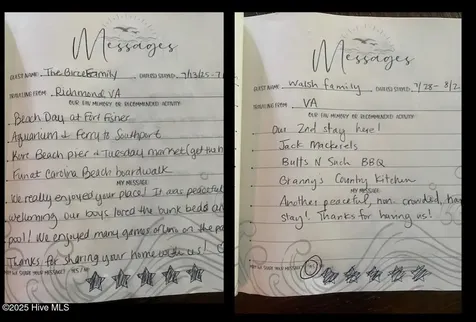 Messages
GUEST NAME: The Birce Family DATE(S) STAYED: 7/13/25-7
TRAVELING FROM: Richmond, VA
OUR FAV MEMORY OR RECOMMENDED ACTIVITY:
Beach Day at Fort Fisher
Aquarium & Ferry to Southport
Kure Beach pier & Tuesday market (get the h
Fun at Carolina Beach boardwalk
MY MESSAGE:
We really enjoyed your place! It was peaceful
welcoming our boys loved the bunk beds an
pool! We enjoyed many games of on the pa
Thanks for sharing your home with us!
MAY WE SHARE YOUR MESSAGE? YES / NO
Messages
GUEST NAME: Walsh family DATE(S) STAYED: 7/28 - 8/2
TRAVELING FROM: VA
OUR FAV MEMORY OR RECOMMENDED ACTIVITY:
Our 2nd stay here!
Jack Mackerels
Butts N Such BBQ
Granny's Country Kitchen
MY MESSAGE:
Another peaceful, non-crowded,
stay! Thanks for having us!
MAY WE SHARE YOUR MESSAGE? YES
©2025 Hive MLS